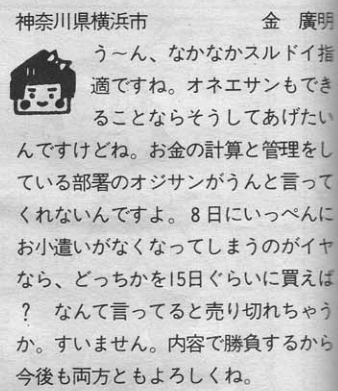 神奈川県横浜市　金　廣明
う～ん、なかなかスルドイ指
適ですね。オネエサンもでき
ることならそうしてあげたい
んですけどね。お金の計算と管理をし
ている部署のオジサンがうんと言って
くれないんですよ。8日にいっぺんに
お小遣いがなくなってしまうのがイヤ
なら、どっちかを15日ぐらいに買えば
？　なんて言ってると売り切れちゃう
か。すいません。内容で勝負するから
今後も両方ともよろしくね。